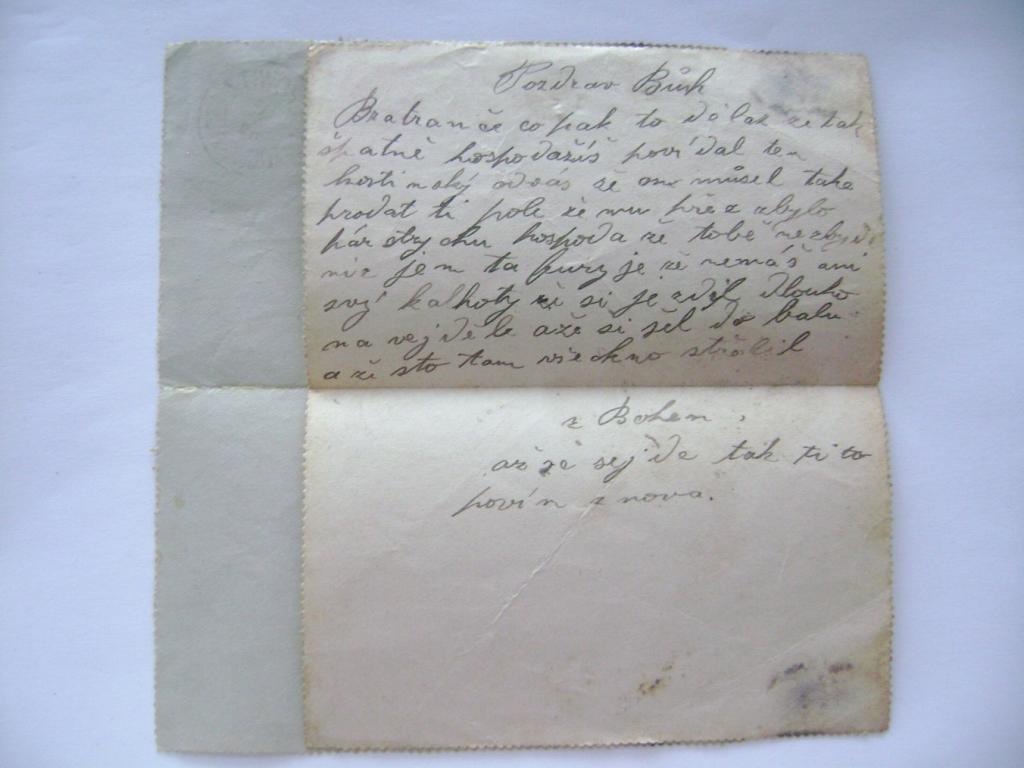 Pozdrav Bůh
Bratranče copak to děláš že tak
špatně hospodažíš poví dal ten
hostinský od vás že on můsel také
prodat ti pole že mu přez zbylo
pár štychu hospoda že tobě nezbyde
niž jem ta že nemáš ani
svý kalhoty že si je dlouho
na vejděle a že si šel do balu
a že sto tam všechno
z Bohem,
až sě sejde tak ti to
povín znova.